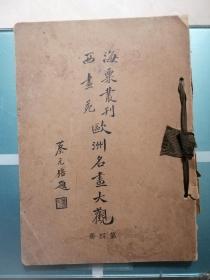 海粟叢刊
西畫苑 歐洲名畫大觀
蔡元培題
第四册